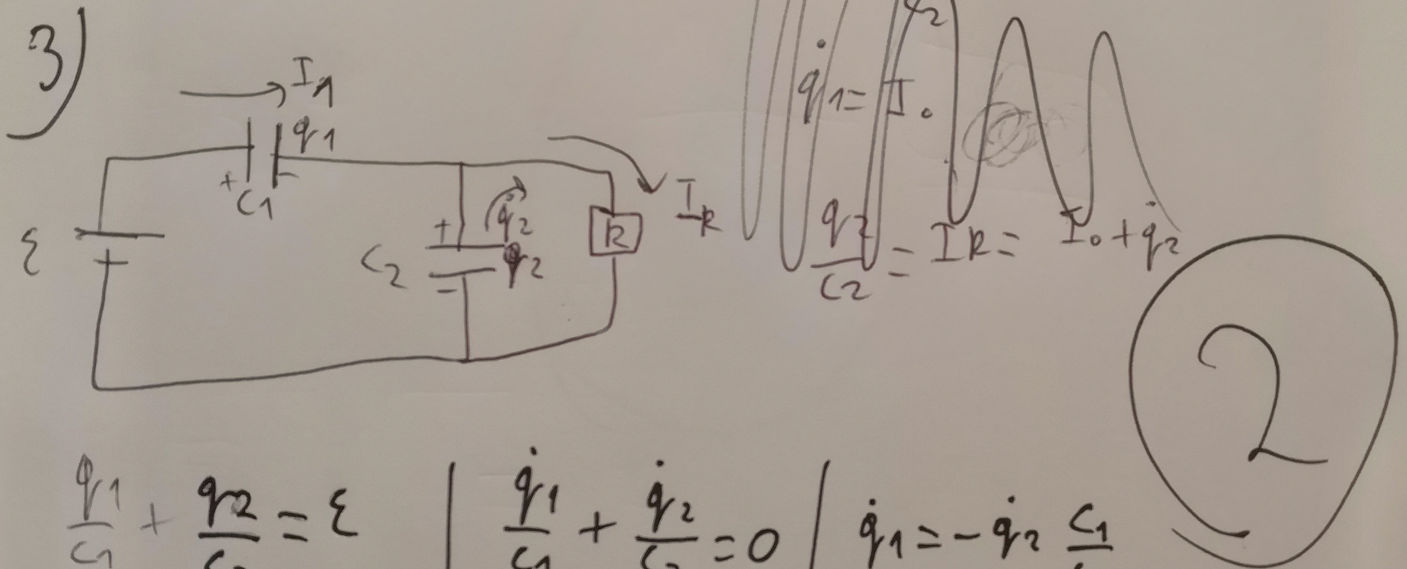 3)
I1
q1
+ -
C1
ε
+
C2
+
q̇2
q2
-
R
IR
q̇1 = I0
q2/C2 = IR = I0 + q̇2
2
q1/C1 + q2/C2 = ε | q̇1/C1 + q̇2/C2 = 0 | q̇1 = -q̇2 C1/